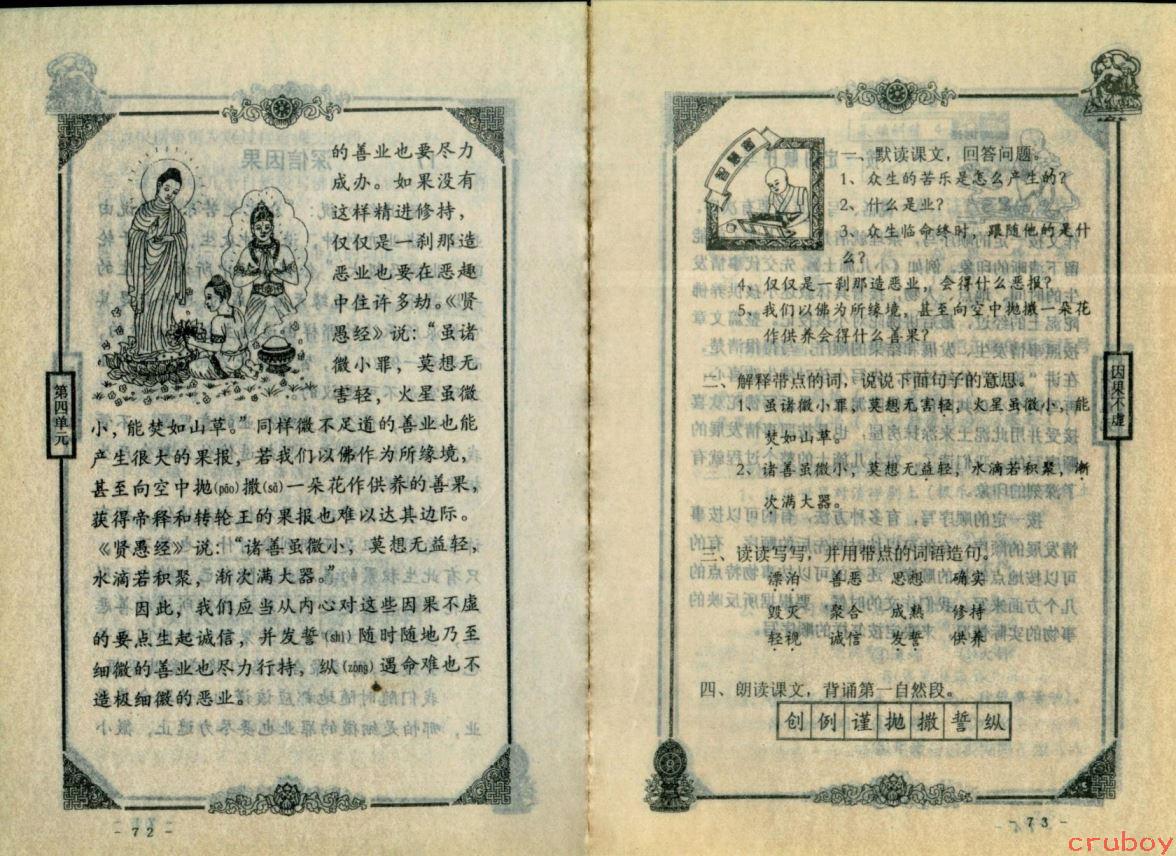 的善业也要尽力
成办。如果没有
这样精进修持，
仅仅是一刹那造
恶业也要在恶趣
中住许多劫。《贤
愚经》说：“虽诸
微小罪，莫想无
害轻，火星虽微
小，能焚如山草。”同样微不足道的善业也能
产生很大的果报，若我们以佛作为所缘境，
甚至向空中抛(pāo)撒(sǎ)一朵花作供养的善果，
获得帝释和转轮王的果报也难以达其边际。
《贤愚经》说：“诸善虽微小，莫想无益轻，
水滴若积聚，渐次满大器。”
因此，我们应当从内心对这些因果不虚
的要点生起诚信，并发誓(shì)随时随地乃至
细微的善业也尽力行持，纵(zòng)遇命难也不
造极细微的恶业。
第四单元
- 72 -
智慧窗
一、默读课文，回答问题。
1、众生的苦乐是怎么产生的？
2、什么是业？
3、众生临命终时，跟随他的是什
么？
4、仅仅是一刹那造恶业，会得什么恶报？
5、我们以佛为所缘境，甚至向空中抛撒一朵花
作供养会得什么善果？
二、解释带点的词，说说下面句子的意思。
1、虽诸微小罪，莫想无害轻，火星虽微小，能
焚如山草。
2、诸善虽微小，莫想无益轻，水滴若积聚，渐
次满大器。
三、读读写写，并用带点的词语造句。
漂泊 善恶 思想 确实
毁灭 聚合 成熟 修持
轻视 诚信 发誓 供养
四、朗读课文，背诵第一自然段。
创 例 谨 抛 撒 誓 纵
因果不虚
- 73 -
cruboy